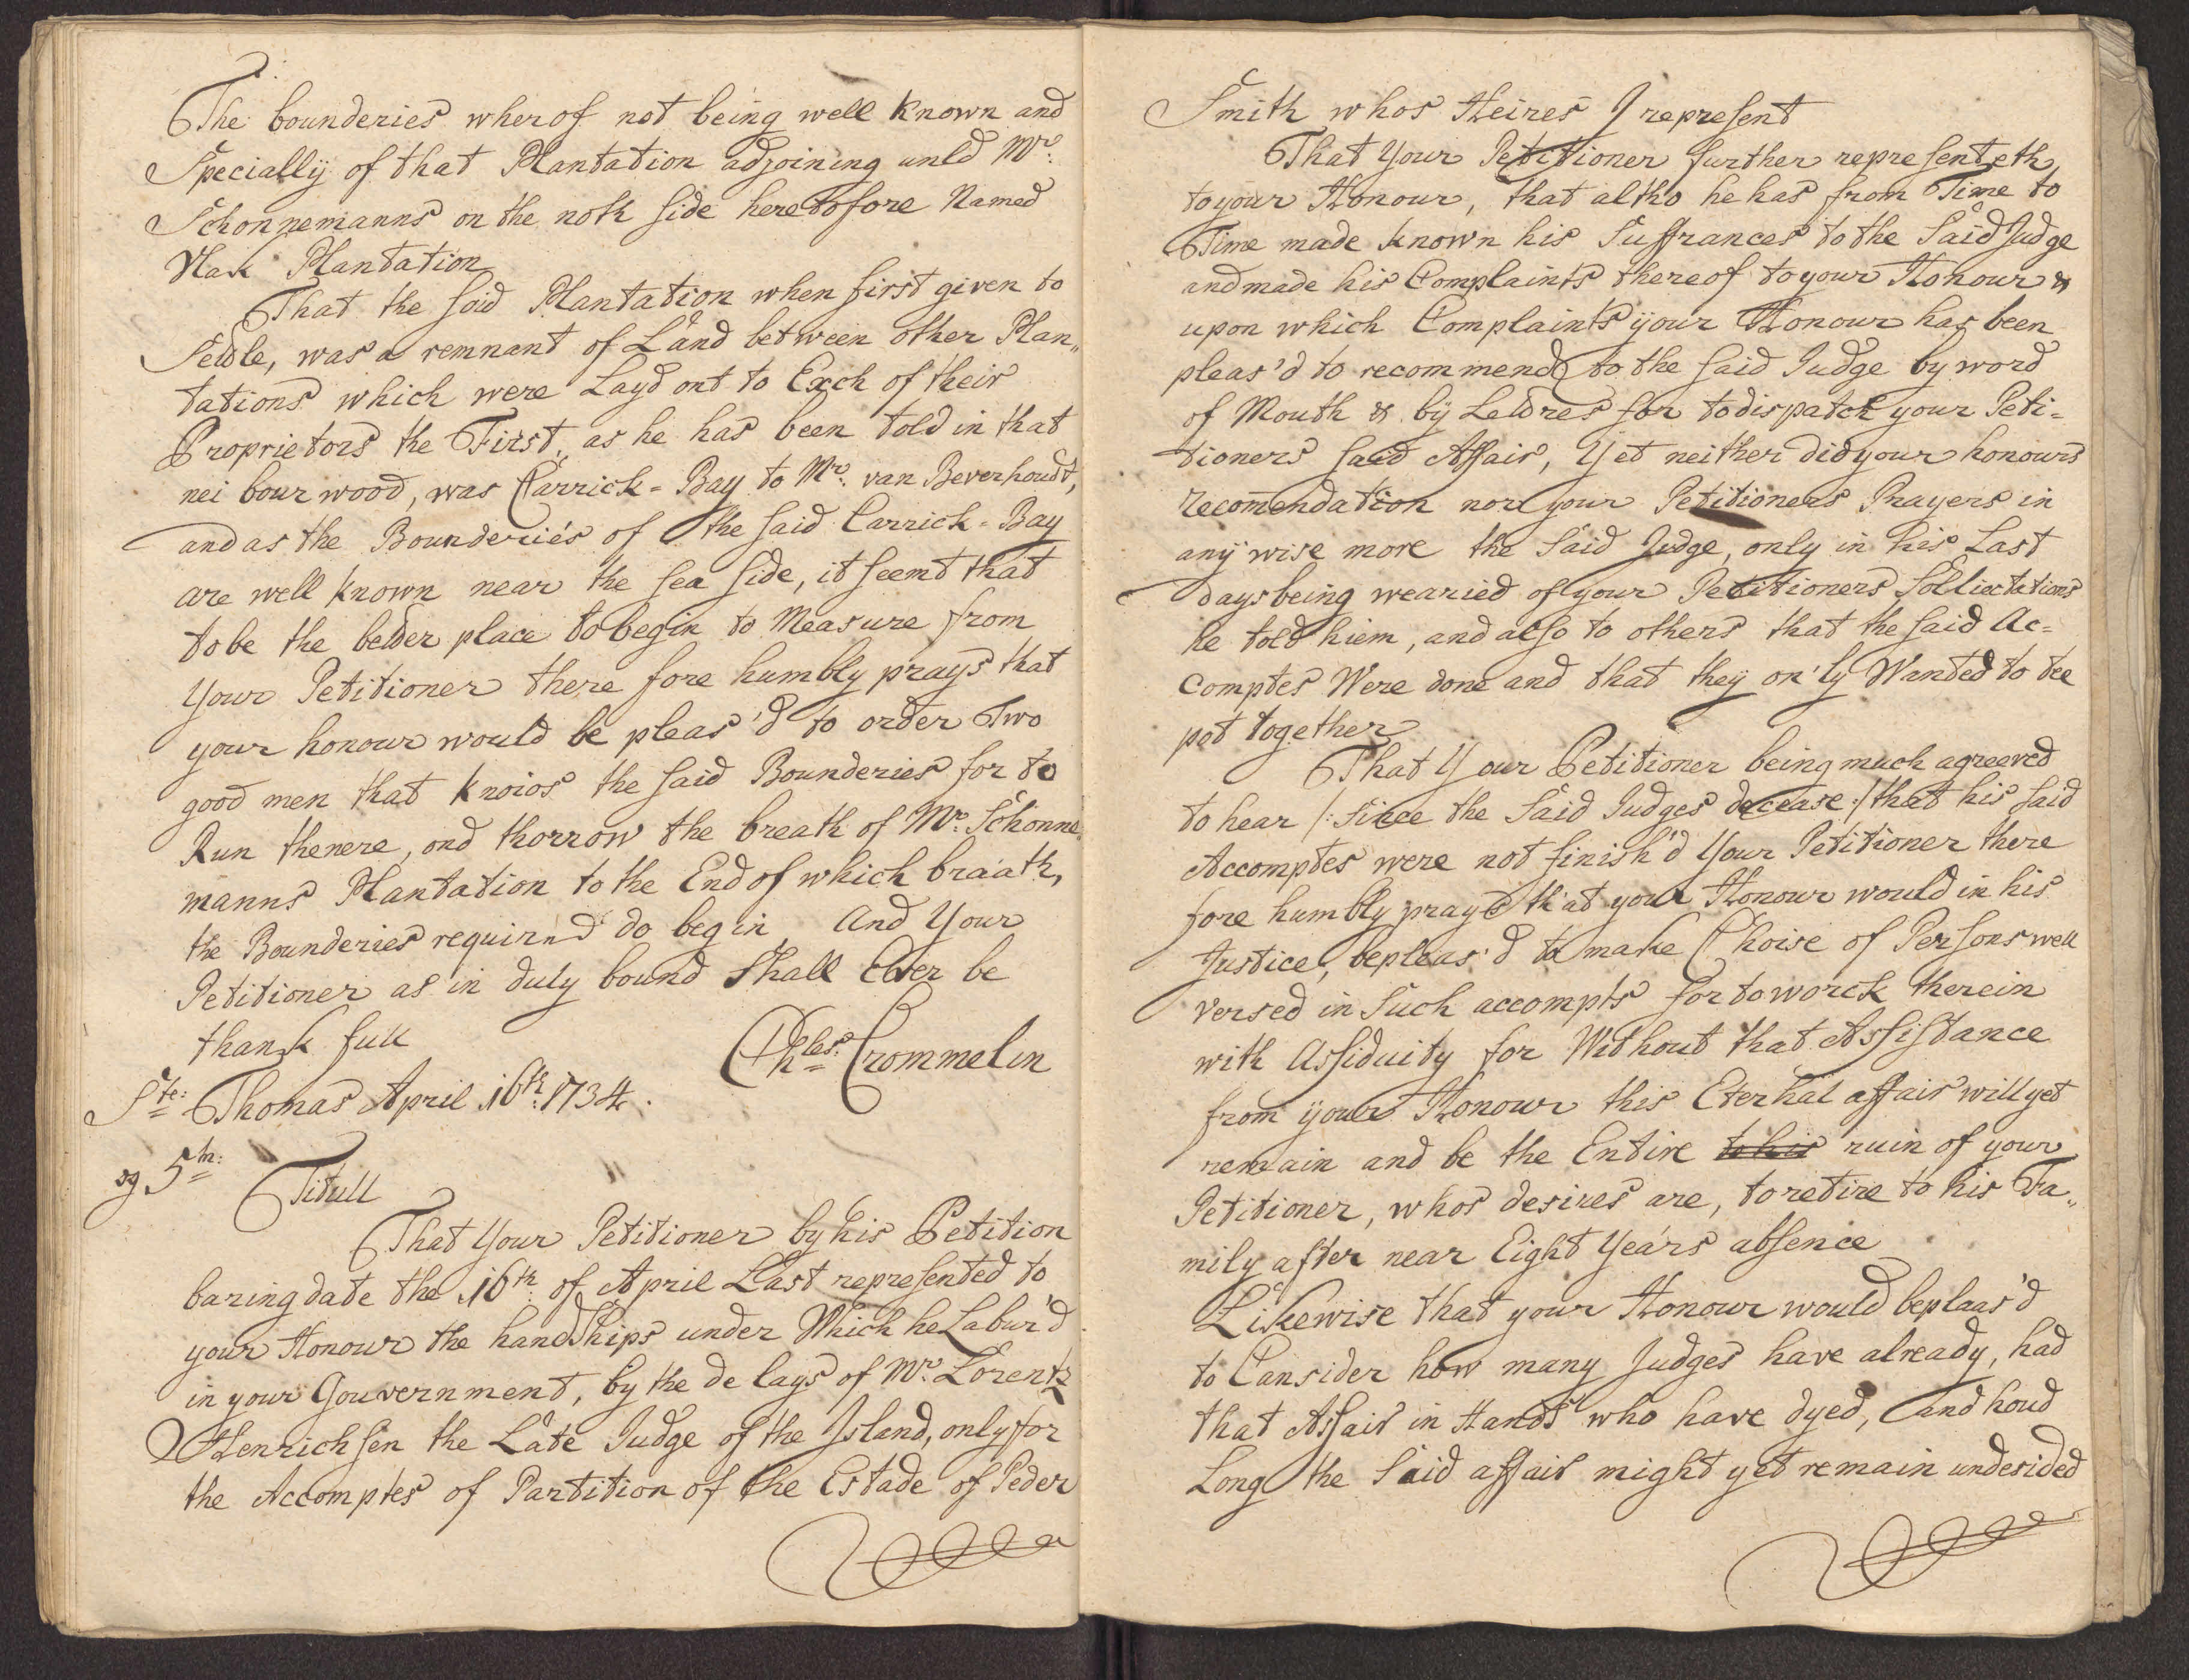 The bounderies wherof not being well known and
Specially of that Plantation adjoining unto Mr:
Schonnemanns on the noth side heretofore Named
Vlak Plantation
That the said Plantation when first given to
was a remnant of Land between other Plan„
tations which were Layd ont to Each of their
Proprietors the First, as he has been told in that
nei bour wood, was Carrick=Bay to Mr: van Beverhoudt,
and as the Bounderiés of the said Carrick=Bay
are well known near the sea side, it seemt that
to be the better place to begin to Measure from
Your Petitioner there fore humbly prays that
your honour would be pleas'd to order Two
good men that knoios the said Bounderies for to
Run thenere, ond thorrow the breath of Mr: Schonne„
manns Plantation to the End of which braath,
the Bounderies requirnd do begin And Your
Petitioner as in duly bound Shall Ever be
thank full
Chles: Crommelin
Ste: Thomas April 16th: 1734.
og 5te:
Titull
That Your Petitioner by his Petition
baring date the 16th of April Last represented to
your Honour the handships under Which he Labur'd
in your Gouvernment, by the de lays of Mr: Lorentz
Henrichsen the Late Judge of the Island, only for
the Accomptes of Partition of the Estade of Peder
Smith whos Heires I represent
That Your Petitioner further representeth
to your Honour, that altho he has from Time to
Time made known his Suffrances to the Said Judge
and made his Complaints thereof to your Honour &
upon which Complaints your Honour has been
pleas'd to recommend to the said Judge by word
of Mouth & by Lettres for to dispatch your Peti=
tioners said Affair, Yet neither did your honours
recom̄endation nor your Petitioners Prayers in
any wise more the Said Judge, only in his Last
days being wearied of your Petitioners Sollicitations
he told hiem, and also to others that the said Ac=
comptes Were done and that they on'ly Wanted to bee
pot together
That Your Petitioner being much agreeved
to hear /: Since the Said Judges decease :/ that his said
Accomptes were not finish'd Your Petitioner there
fore humbly prayd that your Honour would in his
Justice, be pleas'd to make Choise of Persons well
versed in Such accompts for to worck therein
with Assiduity for Without that Assistance
from your Honour this Eternal affair will yet
remain and be the Entire to his ruin of your
Petitioner, whos desires are, to retire to his Fa„
mily after near Eight Years absence
Likewise that your Honour would be plaas'd
to Cansider how many Judges have already, had
that Affair in Hands who have dyed, and houd
Long the Said affair might yet remain undesided